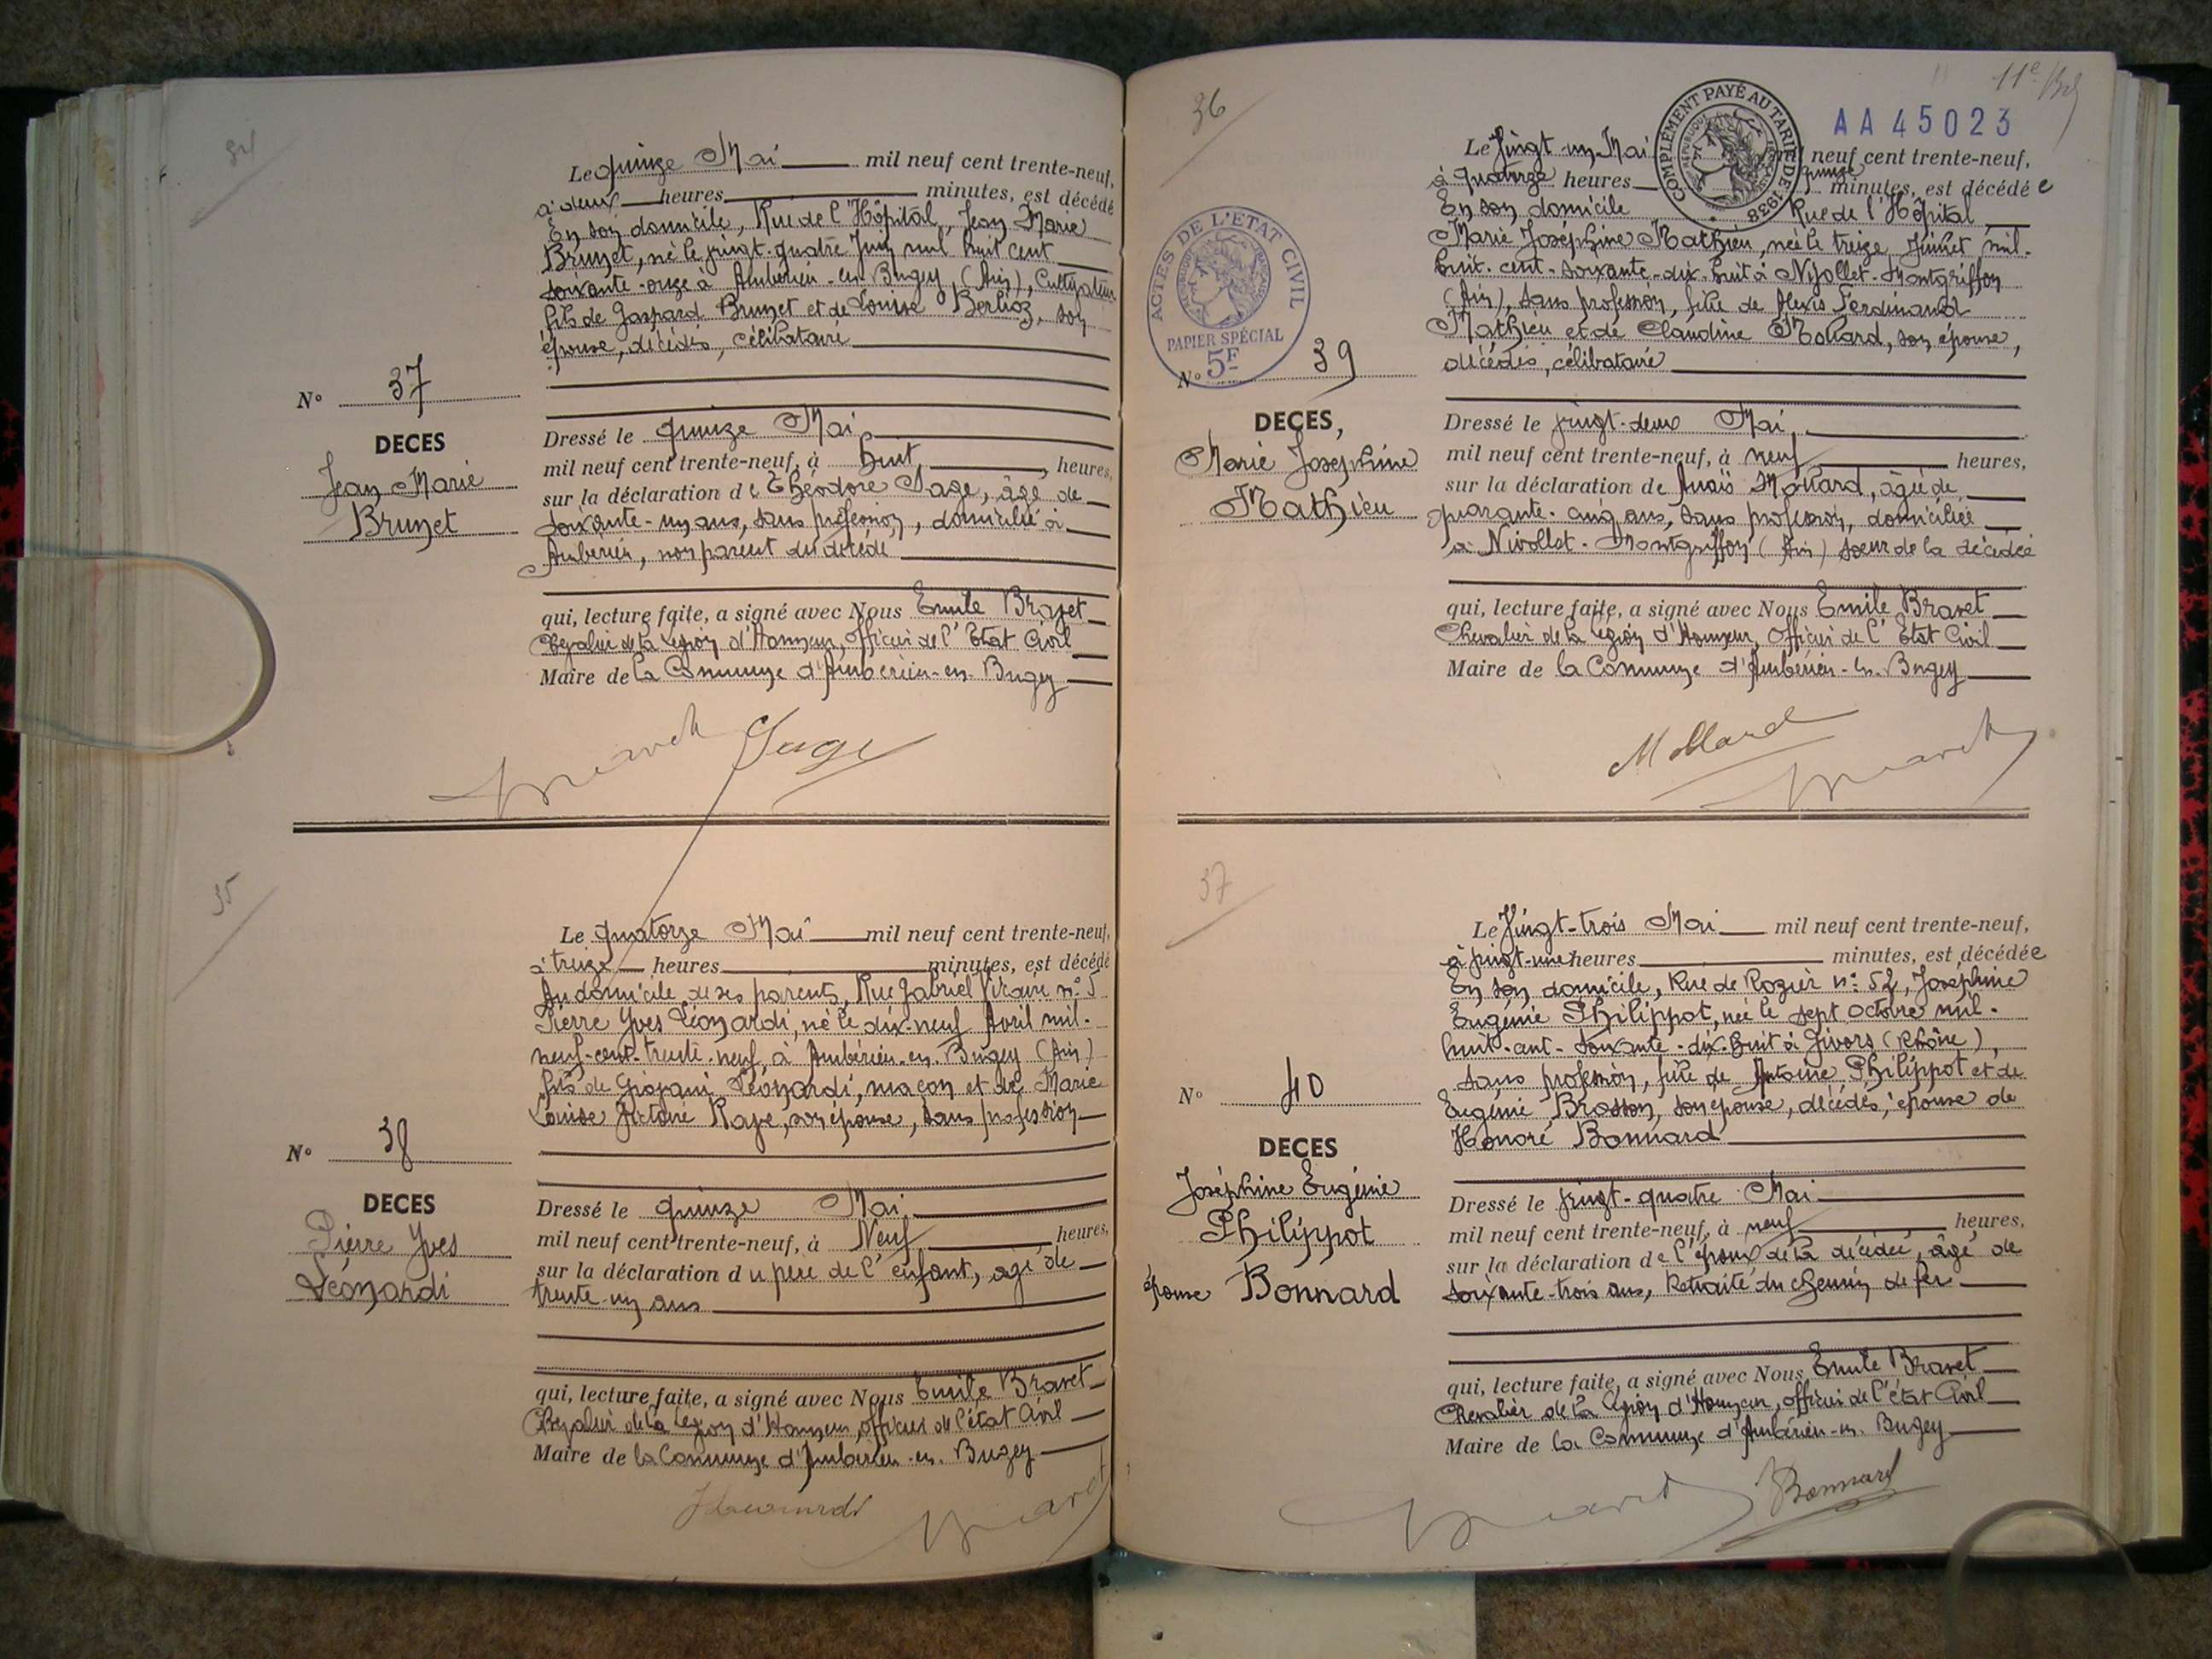 34
Le quinze Mai mil neuf cent trente-neuf,
à deux heures minutes, est décédé
En son domicile, Rue de l'Hôpital, Jean Marie
Brunet, né le vingt-quatre Juin mil huit cent
soixante-onze à Ambérieu-en-Bugey (Ain), Cultivateur
fils de Gaspard Brunet et de Louise Berlioz, son
épouse, décédés, célibataire
N° 37
DECES
Jean Marie
Brunet
Dressé le quinze Mai
mil neuf cent trente-neuf, à huit, heures,
sur la déclaration de Théodore Sage, âgé de
soixante-un ans, sans profession, domicilié à
Ambérieu, non parent du décédé
qui, lecture faite, a signé avec Nous Emile Bravet
Chevalier de la Légion d'Honneur, Officier de l'Etat Civil
Maire de la Commune d'Ambérieu-en-Bugey
Bravet Sage
35
Le quatorze Mai mil neuf cent trente-neuf,
à treize heures minutes, est décédé
Au domicile de ses parents, Rue Gabriel Vicaire n° 5
Pierre Yves Léonardi, né le dix-neuf Avril mil-
neuf-cent-trente-neuf, à Ambérieu-en-Bugey (Ain)
fils de Giovani Léonardi, maçon et de Marie
Louise Victorie Rape, son épouse, sans profession
N° 38
DECES
Pierre Yves
Léonardi
Dressé le quinze Mai
mil neuf cent trente-neuf, à Neuf heures,
sur la déclaration du père de l'enfant, agé de
trente-un ans
qui, lecture faite, a signé avec Nous Emile Bravet
Chevalier de la Légion d'Honneur, officier de l'état Civil
Maire de la Commune d'Ambérieu-en-Bugey
Bravet
36
11e
AA 45023
COMPLÉMENT PAYÉ AU TARIF DE 1938
RÉPUBLIQUE FRANÇAISE
Le Vingt-un Mai mil neuf cent trente-neuf,
à quatorze heures quinze minutes, est décédée
En son domicile Rue de l'Hôpital
Marie Joséphine Mathieu, née le treize Juillet mil-
huit-cent-soixante-dix-huit à Nivollet-Montgriffon
(Ain), sans profession, fille de Alexis Ferdinand
Mathieu et de Claudine Mollard, son épouse,
décédés, célibataire
ACTES DE L'ETAT CIVIL
RÉPUBLIQUE FRANÇAISE
PAPIER SPÉCIAL
5F
N° 39
DECES,
Marie Josephine
Mathieu
Dressé le vingt-deux Mai,
mil neuf cent trente-neuf, à neuf heures,
sur la déclaration de Anaïs Mollard, âgée de
quarante-cinq ans, sans profession, domiciliée
à Nivollet-Montgriffon (Ain) soeur de la décédée
qui, lecture faite, a signé avec Nous Emile Bravet
Chevalier de la Légion d'Honneur, Officier de l'Etat Civil
Maire de la Commune d'Ambérieu-en-Bugey
Mollard Bravet
37
Le Vingt-trois Mai mil neuf cent trente-neuf,
à vingt-une heures minutes, est décédée
En son domicile, Rue de Rozier n° 52, Joséphine
Eugénie Philippot, née le sept Octobre mil-
huit-cent-soixante-dix-huit à Givors (Rhône),
sans profession, fille de Antoine Philippot et de
Eugénie Brosson, son épouse, décédés, épouse de
Honoré Bonnard
N° 40
DECES
Joséphine Eugénie
Philippot
épouse Bonnard
Dressé le vingt-quatre Mai
mil neuf cent trente-neuf, à neuf heures,
sur la déclaration de l'époux de la décédée, âgé de
soixante-trois ans, Retraité du chemin de fer
qui, lecture faite, a signé avec Nous Emile Bravet
Chevalier de la Légion d'Honneur, officier de l'état Civil
Maire de la Commune d'Ambérieu-en-Bugey
Bravet Bonnard